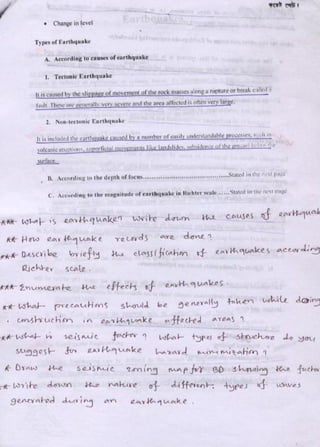 • Change in level
Types of Earthquake
A. According to causes of earthquake
1. Tectonic Earthquake
It is caused by the slippage of movement of the rock masses along a rupture or break called a
fault. These are generally very severe and the area affected is often very large.
2. Non-tectonic Earthquake
It is included the earthquake caused by a number of easily understandable processes, such as
volcanic eruptions, superficial movements like landslides, subsidence of the ground below the
surface.
B. According to the depth of focus..................................Stated in the next page
C. According to the magnitude of earthquake in Richter scale......Stated in the next page
*** What is earthquake? Write down the causes of earthquak
** How earthquake records are done?
*** Describe briefly the classification of earthquakes according
Richter scale.
*** Enumerate the effects of earthquakes.
** What precautions should be generally taken while doing
construction in earthquake affected areas?
** What is seismic factor? What types of structure do you
suggest for earthquake hazard minimization?
* Draw the seismic zoning map for BD showing the factor
** Write down the nature of different types of waves
generated during an earthquake.